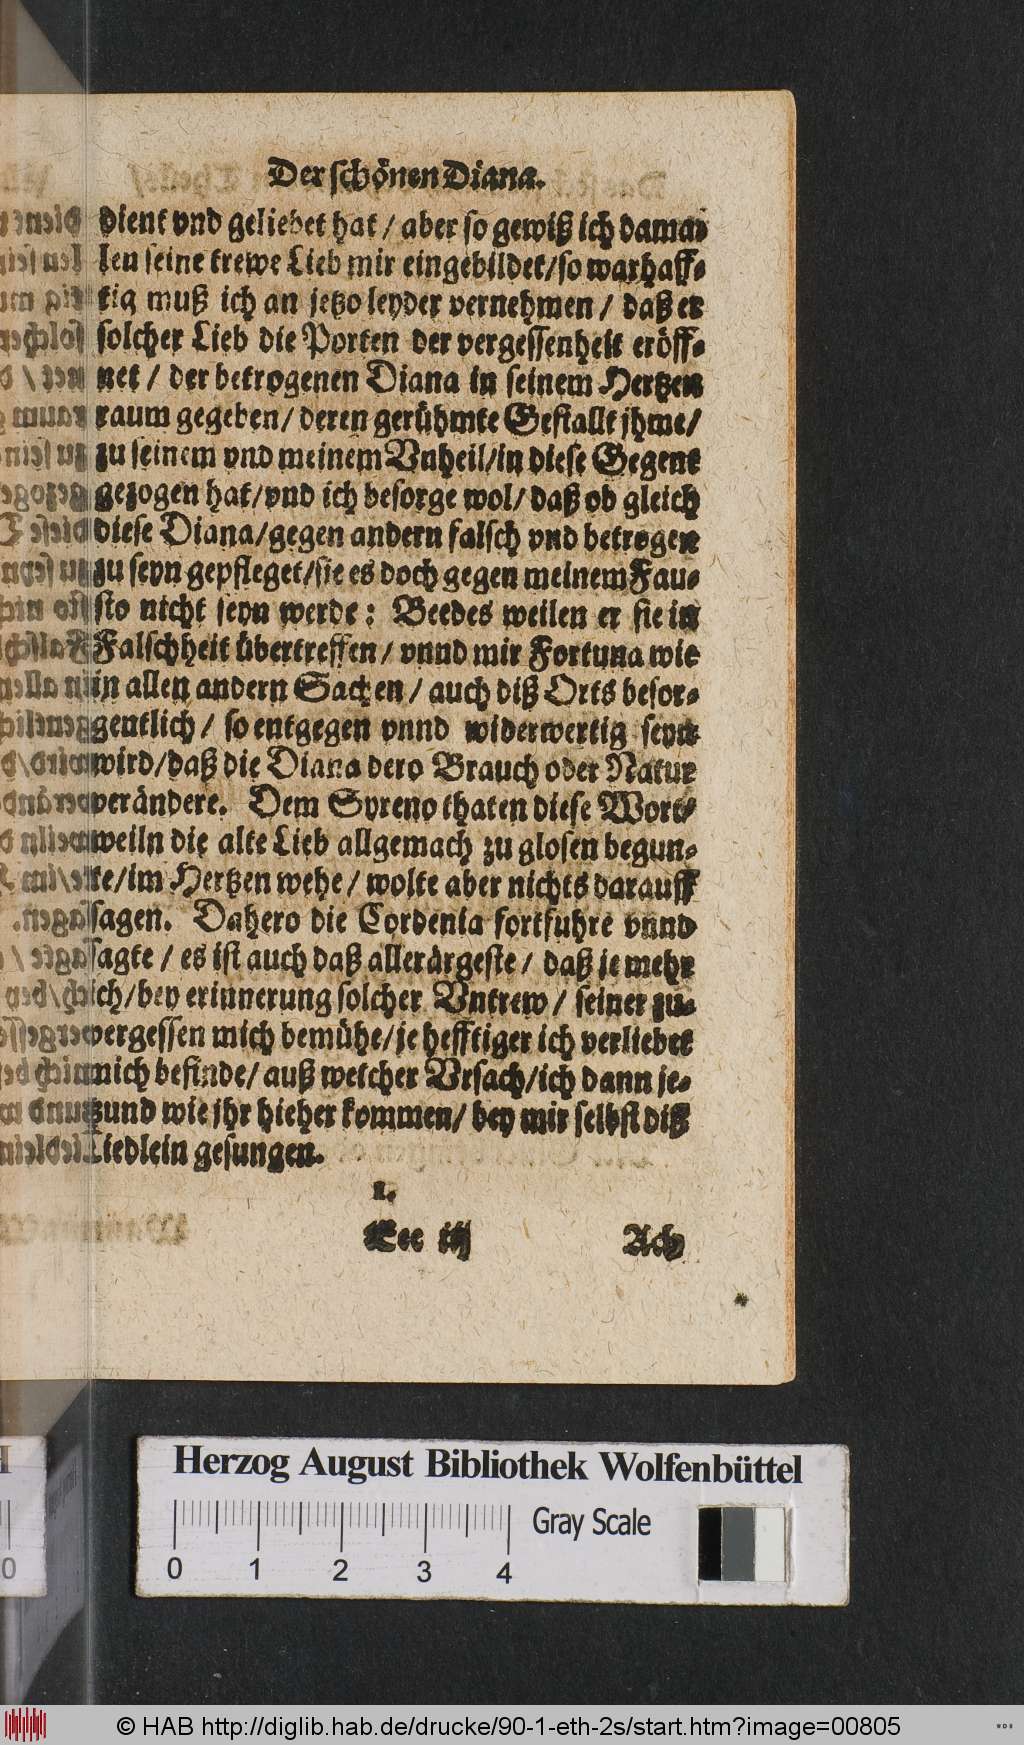 Der schönen Diana.
dient vnd geliebet hat / aber so gewiß ich dama⸗
len seine trewe Lieb mir eingebildet/so warhaff⸗
tig muß ich an jetzo leyder vernehmen / daß er
solcher Lieb die Porten der vergessenheit eröff⸗
net / der betrogenen Diana in seinem Hertzen
raum gegeben/ deren gerühmte Gestallt jhme/
zu seinem vnd meinem Vnheil/in diese Gegent
gezogen hat/vnd ich besorge wol/ daß ob gleich
diese Diana/gegen andern falsch vnd betrogen
zu seyn gepfleget/sie es doch gegen meinem Fau⸗
sto nicht seyn werde: Beedes weilen er sie in
Falschheit übertreffen/ vnnd mir Fortuna wie
in allen andern Sachen / auch diß Orts besor⸗
gentlich / so entgegen vnnd widerwertig seyn
wird/daß die Diana dero Brauch oder Natur
verändere. Dem Syreno thaten diese Wort/
weiln die alte Lieb allgemach zu glosen begun⸗
te/im Hertzen wehe / wolte aber nichts darauff
sagen. Dahero die Cordenia fortfuhre vnnd
sagte / es ist auch daß allerärgeste / daß je mehr
ich/bey erinnerung solcher Vntrew / seiner zu⸗
vergessen mich bemühe/je hefftiger ich verliebet
mich befinde/ auß welcher Vrsach/ich dann je⸗
tzund wie jhr hieher kommen/ bey mir selbst diß
Liedlein gesungen.
1.
Eee iij Ach
Herzog August Bibliothek Wolfenbüttel
Gray Scale
0 1 2 3 4
© HAB http://diglib.hab.de/drucke/90-1-eth-2s/start.htm?image=00805